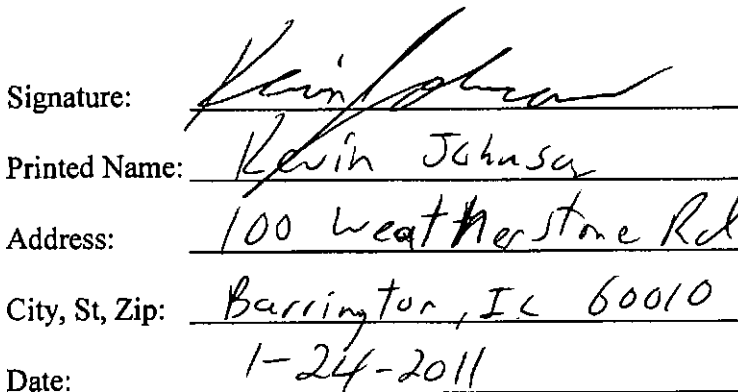 Signature: Kevin Johnson
Printed Name: Kevin Johnson
Address: 100 Weatherstone Rd
City, St, Zip: Barrington, IL 60010
Date: 1-24-2011